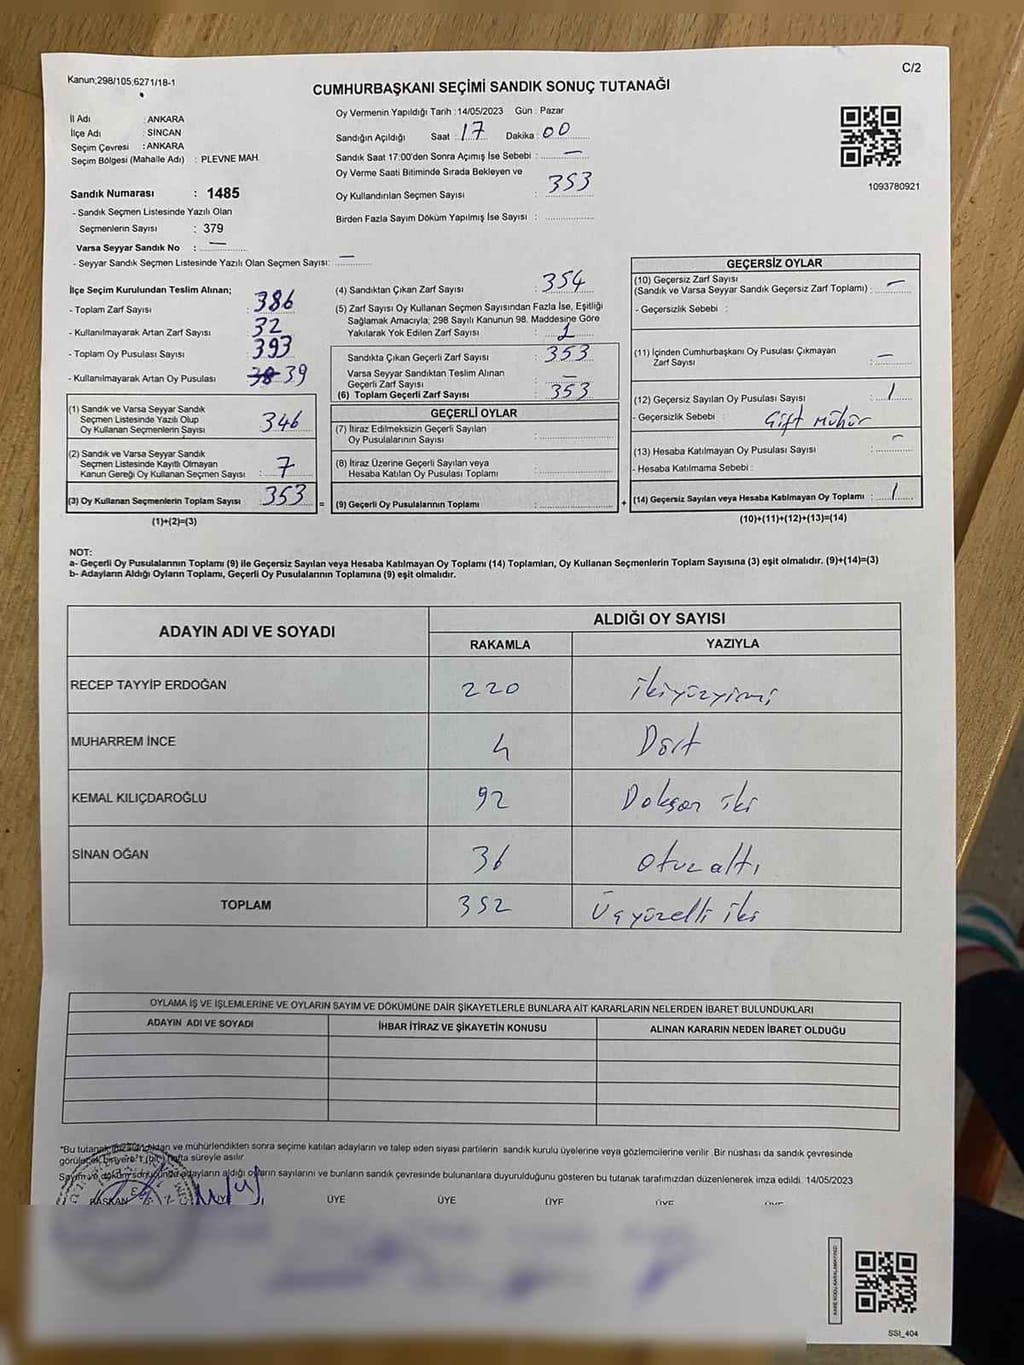 Kanun;298/105,6271/18-1
C/2
CUMHURBAŞKANI SEÇİMİ SANDIK SONUÇ TUTANAĞI
İl Adı : ANKARA
İlçe Adı : SİNCAN
Seçim Çevresi : ANKARA
Seçim Bölgesi (Mahalle Adı) : PLEVNE MAH.
Sandık Numarası : 1485
- Sandık Seçmen Listesinde Yazılı Olan
Seçmenlerin Sayısı : 379
Varsa Seyyar Sandık No : —
- Seyyar Sandık Seçmen Listesinde Yazılı Olan Seçmen Sayısı: —
Oy Vermenin Yapıldığı Tarih : 14/05/2023 Gün : Pazar
Sandığın Açıldığı Saat : 17 Dakika : 00
Sandık Saat 17:00'den Sonra Açımış İse Sebebi : —
Oy Verme Saati Bitiminde Sırada Bekleyen ve
Oy Kullandırılan Seçmen Sayısı : 353
Birden Fazla Sayım Döküm Yapılmış İse Sayısı :
1093780921
İlçe Seçim Kurulundan Teslim Alınan;
- Toplam Zarf Sayısı : 386
- Kullanılmayarak Artan Zarf Sayısı : 32
- Toplam Oy Pusulası Sayısı : 393
- Kullanılmayarak Artan Oy Pusulası : 38 39
(1) Sandık ve Varsa Seyyar Sandık
Seçmen Listesinde Yazılı Olup
Oy Kullanan Seçmenlerin Sayısı : 346
(2) Sandık ve Varsa Seyyar Sandık
Seçmen Listesinde Kayıtlı Olmayan
Kanun Gereği Oy Kullanan Seçmen Sayısı : 7
(3) Oy Kullanan Seçmenlerin Toplam Sayısı : 353 =
(1)+(2)=(3)
(4) Sandıktan Çıkan Zarf Sayısı : 354
(5) Zarf Sayısı Oy Kullanan Seçmen Sayısından Fazla İse, Eşitliği
Sağlamak Amacıyla; 298 Sayılı Kanunun 98. Maddesine Göre
Yakılarak Yok Edilen Zarf Sayısı : 1
Sandıkta Çıkan Geçerli Zarf Sayısı : 353
Varsa Seyyar Sandıktan Teslim Alınan
Geçerli Zarf Sayısı : —
(6) Toplam Geçerli Zarf Sayısı : 353
GEÇERLİ OYLAR
(7) İtiraz Edilmeksizin Geçerli Sayılan
Oy Pusulalarının Sayısı :
(8) İtiraz Üzerine Geçerli Sayılan veya
Hesaba Katılan Oy Pusulası Toplamı :
(9) Geçerli Oy Pusulalarının Toplamı : +
GEÇERSİZ OYLAR
(10) Geçersiz Zarf Sayısı
(Sandık ve Varsa Seyyar Sandık Geçersiz Zarf Toplamı) : —
- Geçersizlik Sebebi :
(11) İçinden Cumhurbaşkanı Oy Pusulası Çıkmayan
Zarf Sayısı : —
(12) Geçersiz Sayılan Oy Pusulası Sayısı : 1
- Geçersizlik Sebebi : Çift Mühür
(13) Hesaba Katılmayan Oy Pusulası Sayısı : —
- Hesaba Katılmama Sebebi :
(14) Geçersiz Sayılan veya Hesaba Katılmayan Oy Toplamı : 1
(10)+(11)+(12)+(13)=(14)
NOT:
a- Geçerli Oy Pusulalarının Toplamı (9) ile Geçersiz Sayılan veya Hesaba Katılmayan Oy Toplamı (14) Toplamları, Oy Kullanan Seçmenlerin Toplam Sayısına (3) eşit olmalıdır. (9)+(14)=(3)
b- Adayların Aldığı Oyların Toplamı, Geçerli Oy Pusulalarının Toplamına (9) eşit olmalıdır.
ADAYIN ADI VE SOYADI
ALDIĞI OY SAYISI
RAKAMLA YAZIYLA
RECEP TAYYİP ERDOĞAN 220 ikiyüzyirmi
MUHARREM İNCE 4 Dört
KEMAL KILIÇDAROĞLU 92 Doksan iki
SİNAN OĞAN 36 otuz altı
TOPLAM 352 Üçyüzelli iki
OYLAMA İŞ VE İŞLEMLERİNE VE OYLARIN SAYIM VE DÖKÜMÜNE DAİR ŞİKAYETLERLE BUNLARA AİT KARARLARIN NELERDEN İBARET BULUNDUKLARI
ADAYIN ADI VE SOYADI İHBAR İTİRAZ VE ŞİKAYETİN KONUSU ALINAN KARARIN NEDEN İBARET OLDUĞU
*Bu tutanak ve mühürlendikten sonra seçime katılan adayların ve talep eden siyasi partilerin sandık kurulu üyelerine veya gözlemcilerine verilir .Bir nüshası da sandık çevresinde
görülecek bir yere 1 (bir) hafta süreyle asılır.
Sayım ve döküm sonucunda adayların aldığı oyların sayılarını ve bunların sandık çevresinde bulunanlara duyurulduğunu gösteren bu tutanak tarafımızdan düzenlenerek imza edildi. 14/05/2023
BAŞKAN ÜYE ÜYE ÜYE ÜYE ÜYE
SSI_404